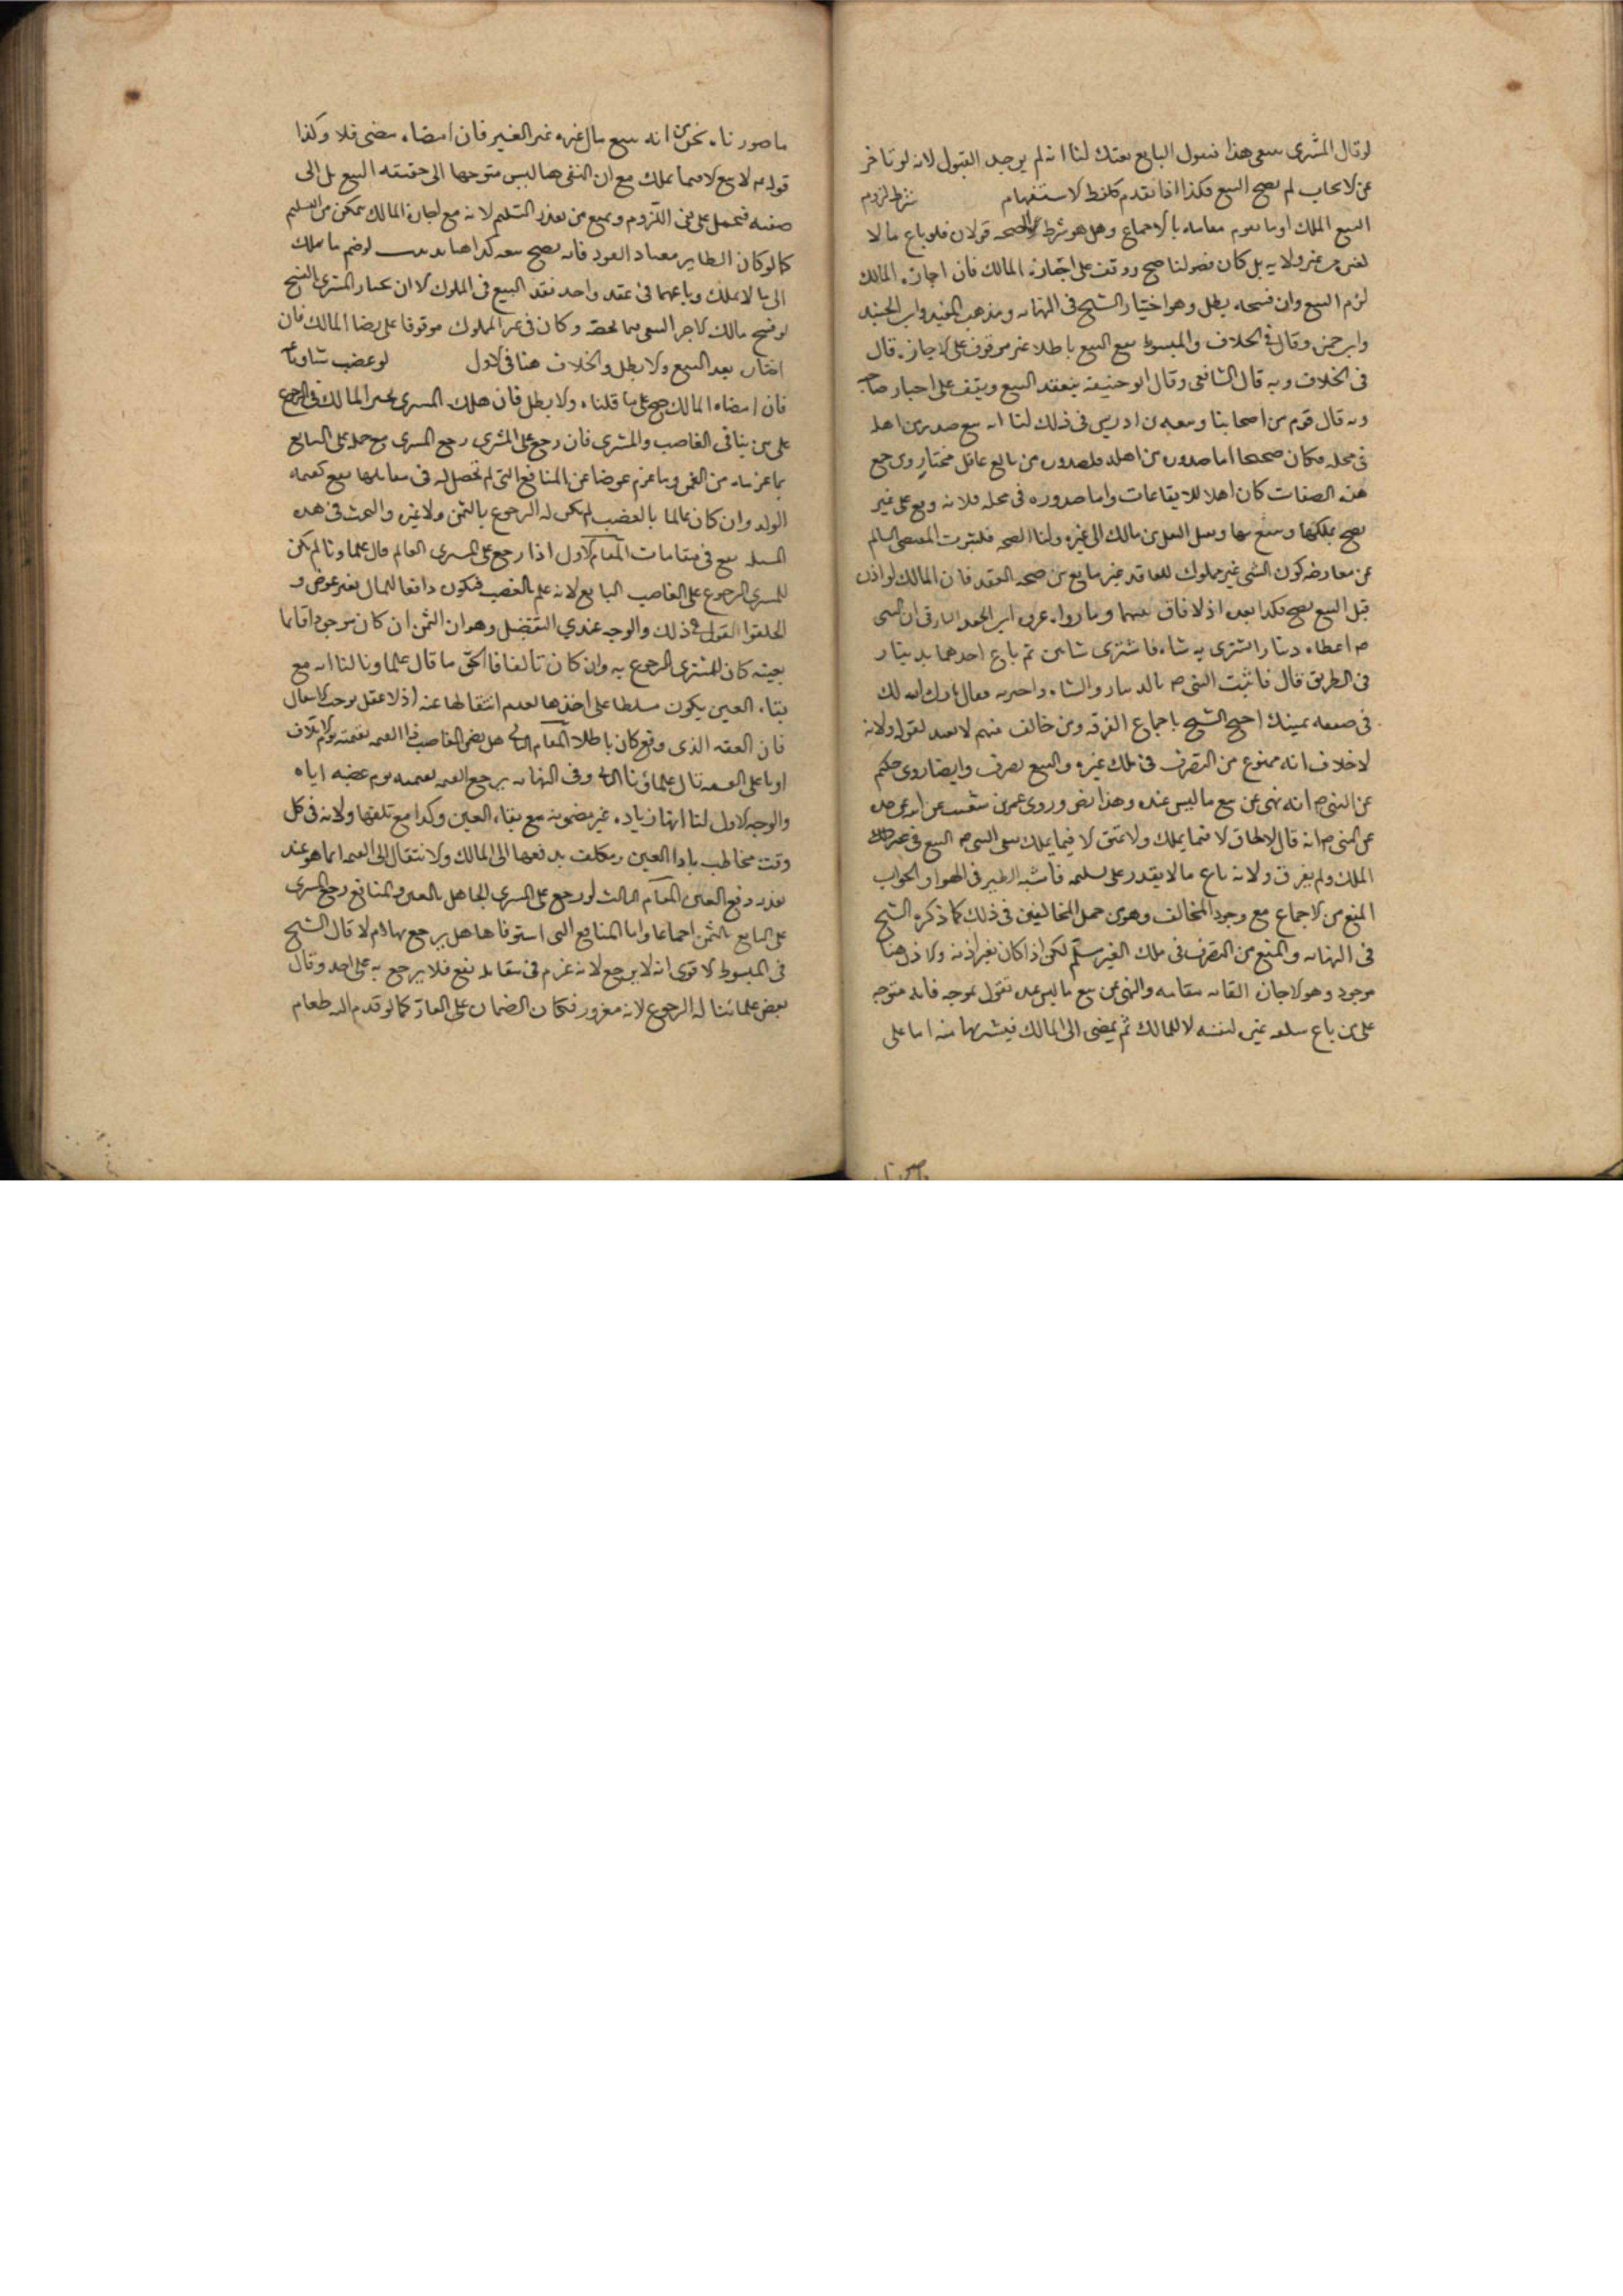 لو قال المشترى بعنى هذا فيقول البايع بعتك لنا انه لم يوجد القبول لانه لو تاخر
عن الايجاب لم يصح البيع فكذا اذا تقدم كلفظ الاستفهام شرط لزوم
البيع الملك او ما يقوم مقامه بالاجماع وهل هو شرط الصحه قولان فلو باع مالا
لغيره من غير ولايه بل كان فضوليا صح ووقف على اجازة المالك فان اجازه المالك
لزم البيع وان فسخه بطل وهو اختيار الشيخ فى النهايه ومذهب المفيد وابن الجنيد
وابن حمزه وقال فى الخلاف والمبسوط يقع البيع باطلا غير موقوف على الاجازه قال
فى الخلاف وبه قال الشافعى وقال ابو حنيفة ينعقد البيع ويقف على اجازة صاحبه
وبه قال قوم من اصحابنا وتبعه بن ادريس فى ذلك لنا انه بيع صدر من اهله
فى محله فكان صحيحا اما صدوره من اهله فلصدوره من بالغ عاقل مختار ومن جمع
هذه الصفات كان اهلا للايقاعات واما صدوره فى محله فلانه وقع على عين
يصح تملكها وينتفع بها ويقبل النقل من مالك الى غيره ولنا الصحه فلثبوت المقتضى السالم
عن معارضه كون الشى غير مملوك للعاقد غير مانع من صحه العقد فان المالك لو اذن
قبل البيع يصح فكذا بعده اذ لا فارق بينهما وما رواه عروه ابن الجعد البارقى ان النبى
ص اعطاه دينارا ليشترى به شاه فاشترى شاتين ثم باع احدهما بدينار
فى الطريق قال فاتيت النبى ص بالدينار والشاه واخبرته فقال بارك الله لك
فى صفقه يمينك احتج الشيخ باجماع الفرقه ومن خالف منهم لا يعتد بقوله ولانه
لا خلاف انه ممنوع من التصرف فى ملك غيره والبيع تصرف وايضا روى حكيم
عن النبى ص انه نهى عن بيع ما ليس عنده وهذا نص وروى عمرو بن شعيب عن ابيه عن جده
عن النبى ص انه قال لا طلاق الا فيما يملك ولا عتق الا فيما يملك نفى النبى ص البيع فى غير
الملك ولم يفرق ولانه باع ما لا يقدر على تسليمه فاشبه الطير فى الهوا والجواب
المنع من الاجماع مع وجود المخالف وهو من جمله المخالفين فى ذلك كما ذكره الشيخ
فى النهايه والمنع من التصرف فى ملك الغير مسلم لكن اذا كان بغير اذنه والاذن هنا
موجود وهو الاجازه القائمه مقامه والنهى عن بيع ما ليس عنده نقول بموجبه فانه متوجه
على من باع سلعه غيره لنفسه لا للمالك ثم يمضى الى المالك فيشتريها منه اما على
ما صورناه نحن من انه يبيع مال غيره عن الغير فان امضاه مضى فلا وكذا
قوله ص لا بيع الا فيما يملك مع ان النفى هنا ليس متوجها الى حقيقه البيع بل الى
صفته فيحمل على نفى اللزوم ونمنع من تعذر التسليم لانه مع اجازة المالك يتمكن من التسليم
كما لو كان الطاير معتاد العود فانه يصح بيعه كذا هنا لو ضم ما يملك
الى ما لا يملك وباعهما فى عقد واحد نفذ البيع فى المملوك الا ان يختار المشترى الفسخ
لو فسخ مالك الاخر البيع فيما يخصه وكان فى غير المملوك موقوفا على رضا المالك فان
اختاره نفذ البيع والا بطل والخلاف هنا فى الاول لو غصب شا وباعه
فان امضاه المالك صح على ما قلناه والا بطل فان هلك المشترى تخير المالك فى الرجوع
على من شا فى الغاصب والمشترى فان رجع على المشترى رجع المشترى مع جهله على البايع
بما غرمه من الثمن وما غرم عوضا عن المنافع التى لم تحصل له فى مقابلها نفع كقيمه
الولد وان كان عالما بالغصب لم يكن له الرجوع بالثمن ولا غيره والبحث فى هذه
المسله يقع فى مقامات المقام الاول اذا رجع على المشترى العالم قال علماونا لم يكن
للمشترى الرجوع على الغاصب البايع لانه علم بالغصب فيكون دافعا للمال بغير عوض و
اطلقوا القول فى ذلك والوجه عندي التفصيل وهو ان الثمن ان كان موجودا قائما
بعينه كان للمشترى الرجوع به وان كان تالفا فالحق ما قال علماونا لنا انه مع
بقاء العين يكون مسلطا على اخذها لعدم انتقالها عنه اذ لا عقل يوجب الانتقال
فان العقد الذى وقع كان باطلا المقام الثانى هل يضمن الغاصب القيمه بقيمته يوم الاتلاف
او باعلى القيم قال علماؤنا وفى النهايه يرجع القيمه بقيمته يوم غصبه اياه
والوجه الاول لنا انها زياده غير مضمونه مع بقاء العين وكذا مع تلفها ولانه فى كل
وقت مخاطب باداء العين ومكلف بدفعها الى المالك والانتقال الى القيمه انما هو عند
تعذر دفع العين المقام الثالث لو رجع على المشترى الجاهل بالعين والمنافع رجع المشترى
على البايع بالثمن اجماعا واما المنافع التى استوفاها هل يرجع بها ام لا قال الشيخ
فى المبسوط الاقوى انه لا يرجع لانه غرم فى مقابله نفع فلا يرجع به على احد وقال
بعض علمائنا له الرجوع لانه مغرور فكان الضمان على الغار كما لو قدم اليه طعام